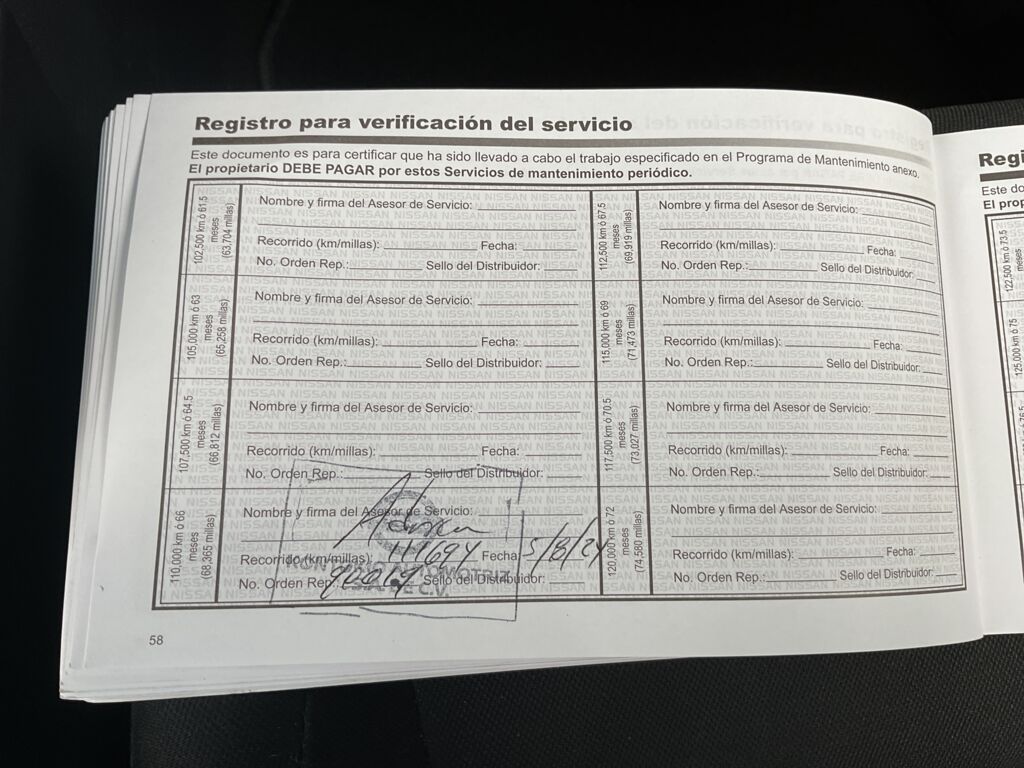 Registro para verificación del servicio
Este documento es para certificar que ha sido llevado a cabo el trabajo especificado en el Programa de Mantenimiento anexo.
El propietario DEBE PAGAR por estos Servicios de mantenimiento periódico.
102,500 km ó 61.5
meses
(63,704 millas)
Nombre y firma del Asesor de Servicio:
Recorrido (km/millas): Fecha:
No. Orden Rep.: Sello del Distribuidor:
105,000 km ó 63
meses
(65,258 millas)
Nombre y firma del Asesor de Servicio:
Recorrido (km/millas): Fecha:
No. Orden Rep.: Sello del Distribuidor:
107,500 km ó 64.5
meses
(66,812 millas)
Nombre y firma del Asesor de Servicio:
Recorrido (km/millas): Fecha:
No. Orden Rep.: Sello del Distribuidor:
110,000 km ó 66
meses
(68,365 millas)
Nombre y firma del Asesor de Servicio:
Recorrido (km/millas): Fecha:
No. Orden Rep.: Sello del Distribuidor:
DE C.V.
112,500 km ó 67.5
meses
(69,919 millas)
Nombre y firma del Asesor de Servicio:
Recorrido (km/millas): Fecha:
No. Orden Rep.: Sello del Distribuidor:
115,000 km ó 69
meses
(71,473 millas)
Nombre y firma del Asesor de Servicio:
Recorrido (km/millas): Fecha:
No. Orden Rep.: Sello del Distribuidor:
117,500 km ó 70.5
meses
(73,027 millas)
Nombre y firma del Asesor de Servicio:
Recorrido (km/millas): Fecha:
No. Orden Rep.: Sello del Distribuidor:
120,000 km ó 72
meses
(74,580 millas)
Nombre y firma del Asesor de Servicio:
Recorrido (km/millas): Fecha:
No. Orden Rep.: Sello del Distribuidor:
58
Regi
Este do
El prop
122,500 km ó 73.5
meses
125,000 km ó 75
meses